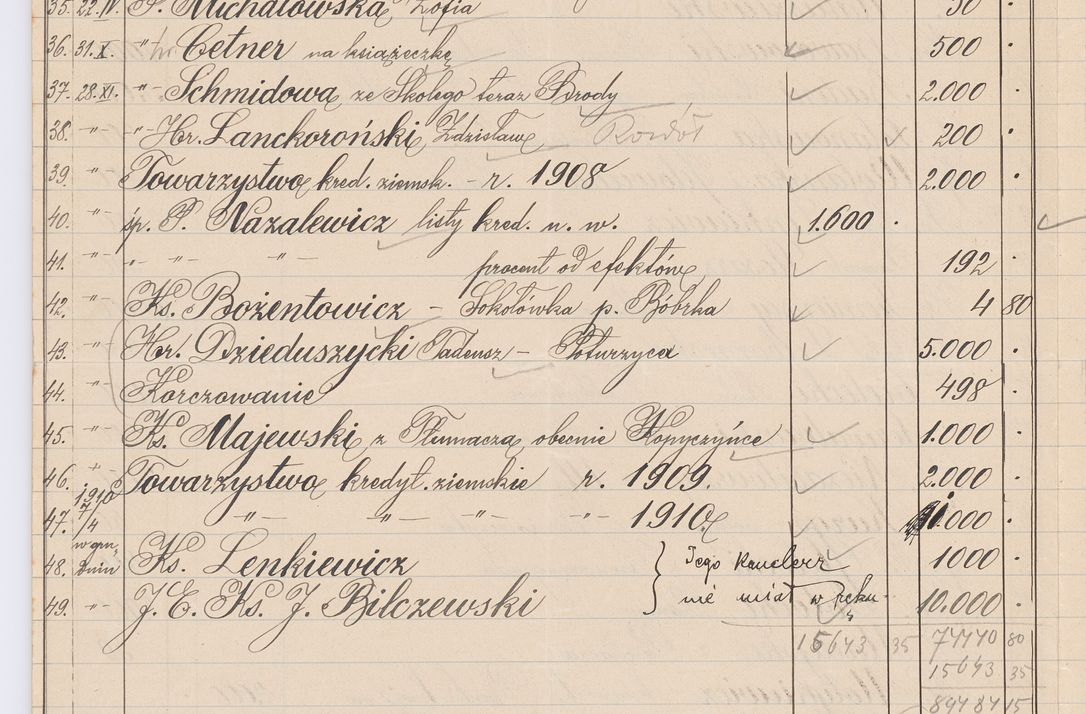 35. 22.IV. P. Michałowska Zofia 50 ·
36. 31.X. " hr. Cetner na książeczkę 500 ·
37. 28.XI. " Schmidowa ze Skolego teraz Brody 2.000 ·
38. " " Hr. Lanckoroński Zdzisław Rozdół 200 ·
39. " Towarzystwo kred. ziemsk. - r. 1908 2.000 ·
40. " śp. P. Nazalewicz listy kred. n. w. 1.600 ·
41. " " " " procent od efektów 192 ·
42. " Ks. Bożentowicz - Sokołówka p. Bóbrka 4 80
43. " Hr. Dzieduszycki Tadeusz - Poturzyca 5.000 ·
44. " Korczowanie 498 ·
45. " Ks. Majewski z Tłumacza, obecnie Kopyczyńce 1.000 ·
46. " Towarzystwo kredyt. ziemskie r. 1909. 2.000 ·
47. 1910 7/4 " " " " 1910. 1.000 ·
48. w grudniu Ks. Lenkiewicz } Tego Kanclerz 1000 ·
49. " J. E. Ks. J. Bilczewski nie miał w ręku 10.000 ·
15643 35 77170 80
15643 35
89787 15